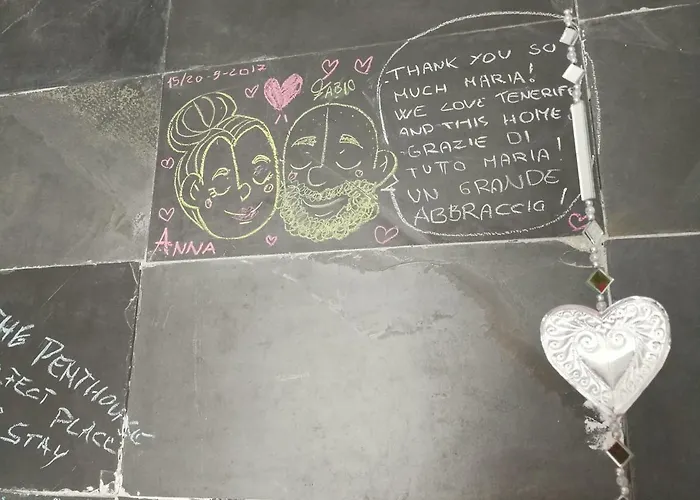 15/20-9-2017
FABIO
ANNA
THANK YOU SO
MUCH MARIA!
WE LOVE TENERIFE
AND THIS HOME.
GRAZIE DI
TUTO MARIA!
UN GRANDE
ABBRACCIO!
THE PENTHOUSE
PLACE
STAY